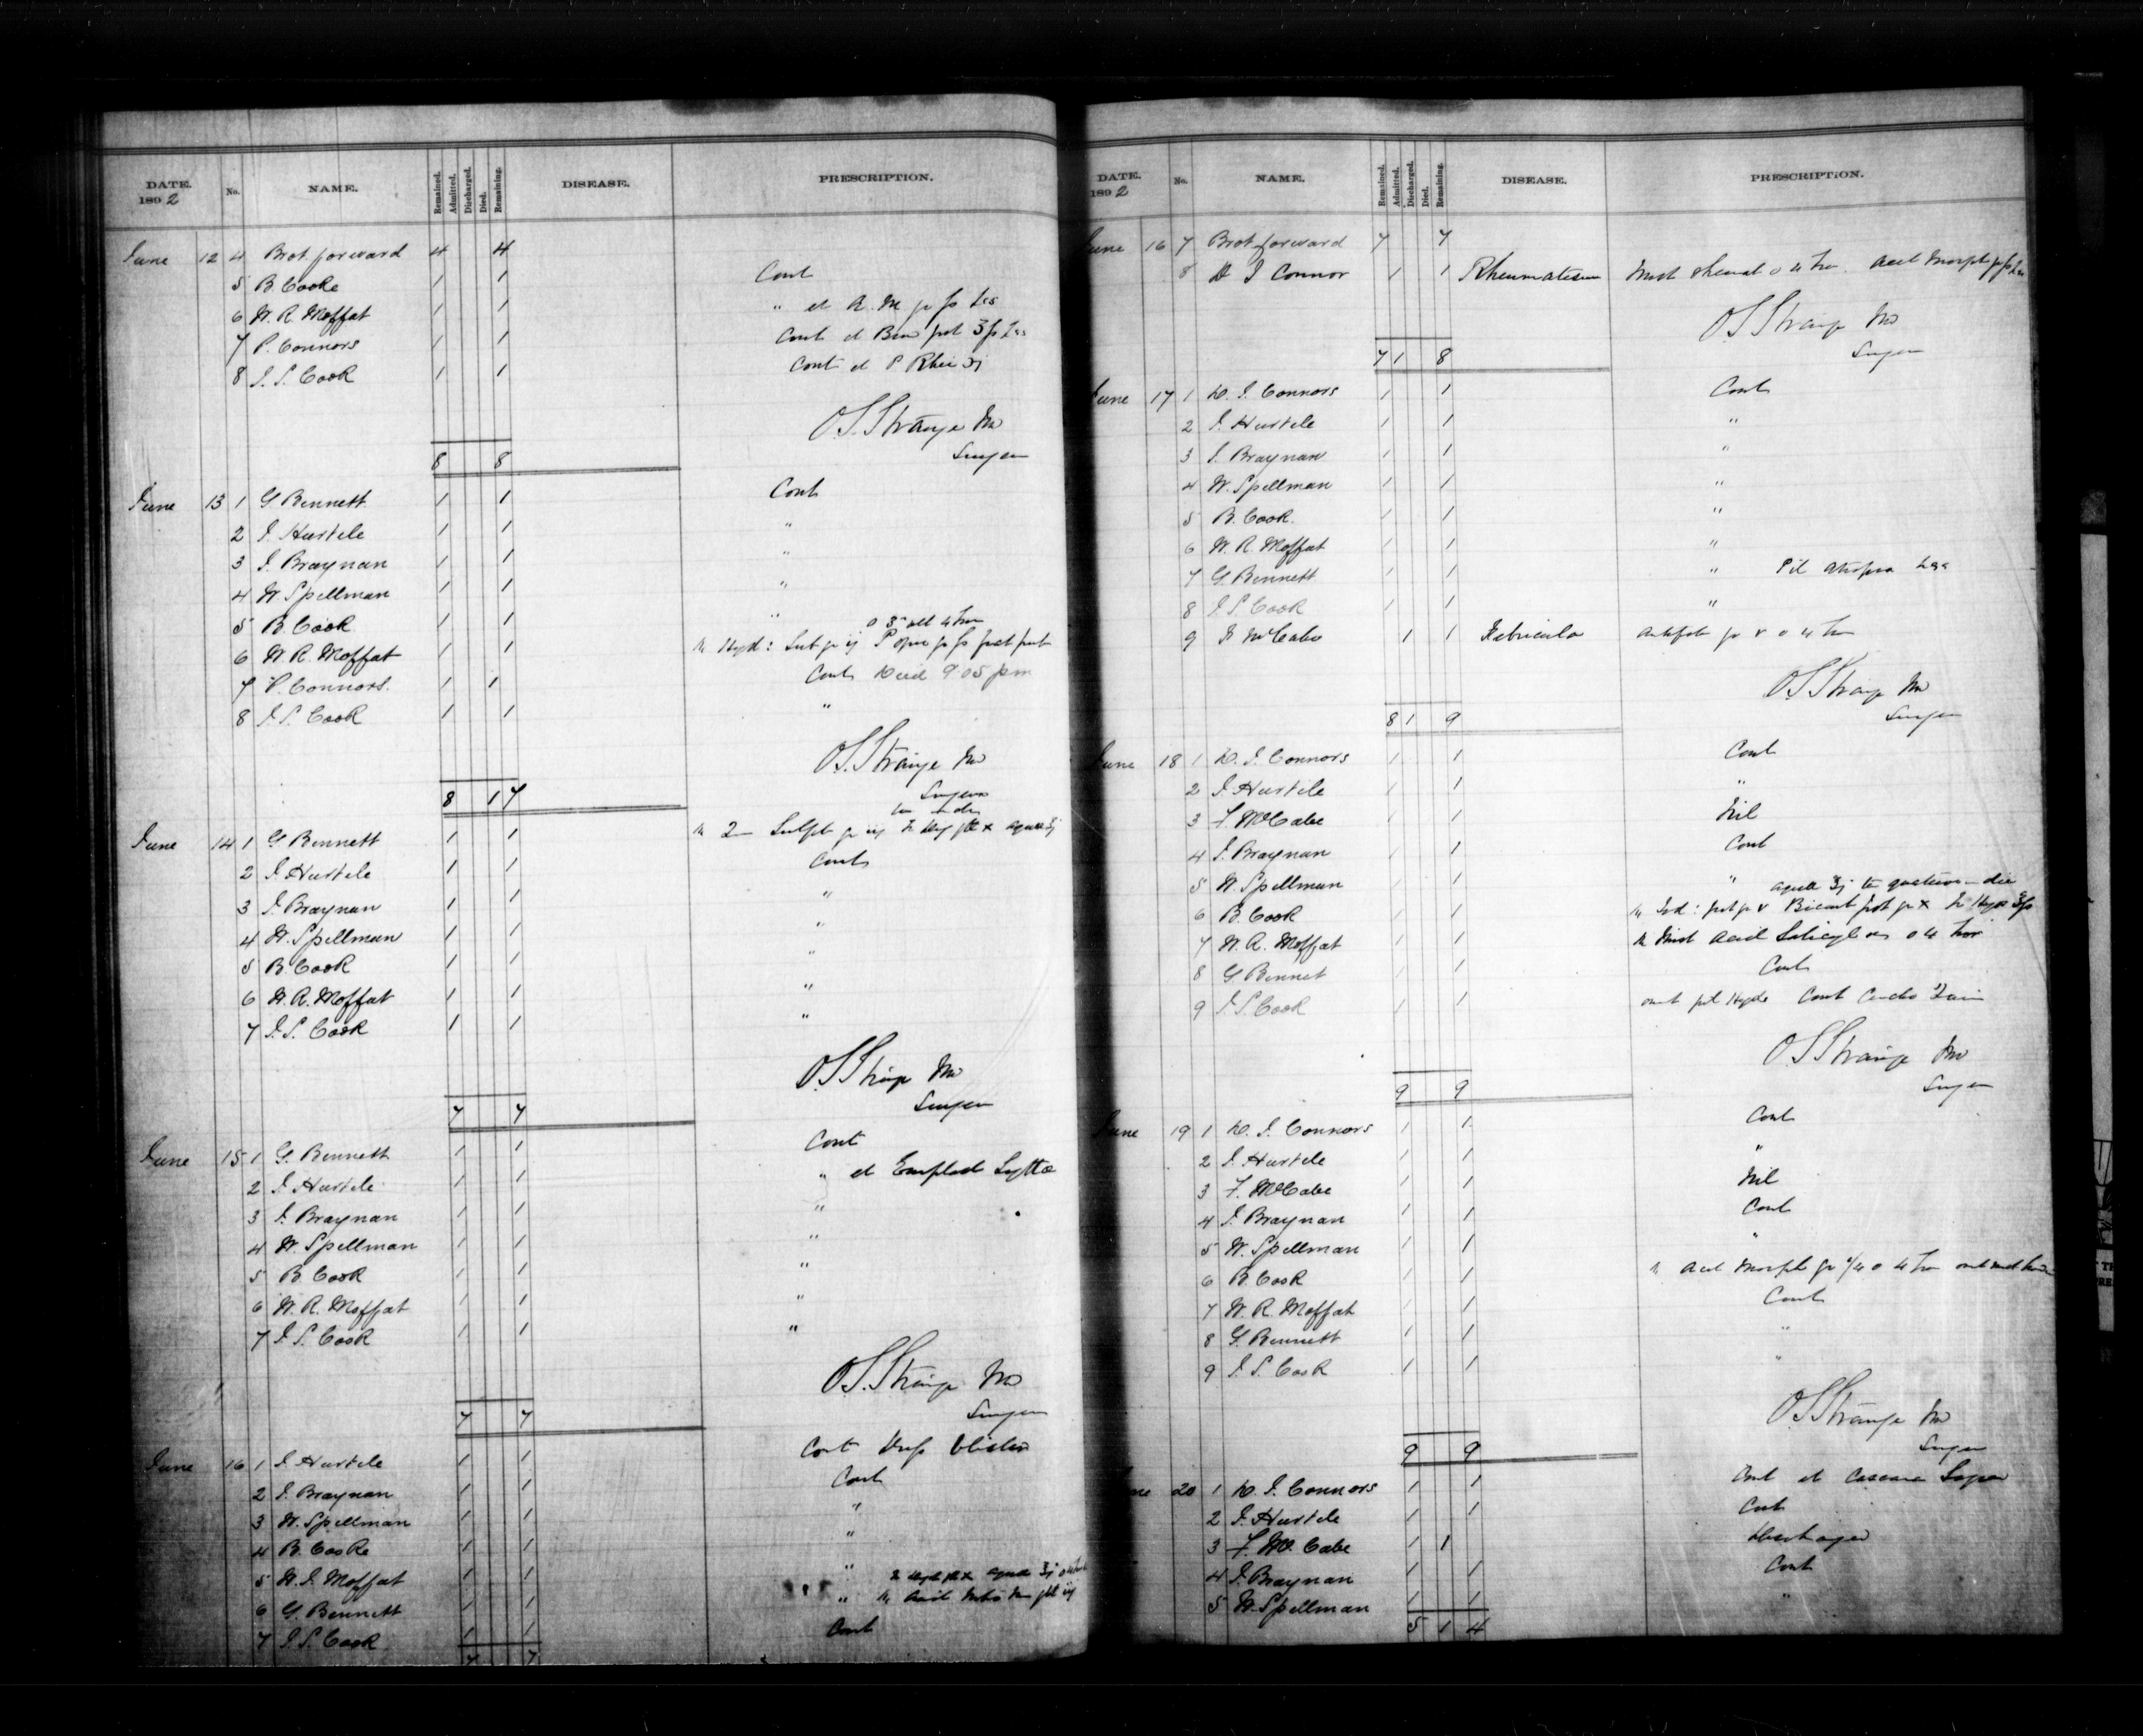 DATE. 1892 No. NAME. Remained. Admitted. Discharged. Died. Remaining. DISEASE. PRESCRIPTION.
June 12 4 Brot forward 4 4
5 B. Cooke 1 1 Cont
6 W. R. Moffat 1 1 "
7 P. Connors 1 1 Cont et
8 J. S. Cook 1 1 Cont et P Rhei
O.S. Strange MD
Surgeon
8 8
June 13 1 G Bennett 1 1 Cont
2 J. Hurtele 1 1 "
3 J. Braynan 1 1 "
4 W Spellman 1 1 "
5 B. Cook 1 1 "
6 W. R. Moffat 1 1
7 P. Connors. 1 1 Cont Died 9.05 pm
8 J. S. Cook 1 1 "
O.S. Strange MD
Surgeon
8 1 7
June 14 1 G Bennett 1 1
2 J. Hurtele 1 1 Cont
3 J. Braynan 1 1 "
4 W. Spellman 1 1 "
5 B Cook 1 1 "
6 W. R. Moffat 1 1 "
7 J. S. Cook 1 1 "
O.S Strange MD
Surgeon
7 7
June 15 1 G. Bennett 1 1 Cont
2 J. Hurtele 1 1 " et Emplast Lyttae
3 J. Braynan 1 1 "
4 W. Spellman 1 1 "
5 B. Cook 1 1 "
6 W. R. Moffat 1 1 "
7 J. S. Cook 1 1 "
O.S. Strange MD
Surgeon
7 7
June 16 1 J. Hurtele 1 1 Cont blister
2 J. Braynan 1 1 Cont
3 W. Spellman 1 1 "
4 B. Cooke 1 1 "
5 W. J. Moffat 1 1 "
6 G. Bennett 1 1 "
7 J. S. Cook 1 1 Cont
7 7
DATE. 1892 No. NAME. Remained. Admitted. Discharged. Died. Remaining. DISEASE. PRESCRIPTION.
June 16 7 Brot forward 7 7
8 D J Connor 1 1 Rheumatism
O.S Strange MD
Surgeon
7 1 8
June 17 1 D. J. Connors 1 1 Cont
2 J. Hurtele 1 1 "
3 J. Braynan 1 1 "
4 W. Spellman 1 1 "
5 B. Cook. 1 1 "
6 W. R. Moffat 1 1 "
7 G. Bennett 1 1 "
8 J. S. Cook 1 1 "
9 F McCabe 1 1 Febricula
O.S Strange MD
Surgeon
8 1 9
June 18 1 D. J. Connors 1 1 Cont
2 J. Hurtele 1 1 "
3 F. McCabe 1 1 Nil
4 J. Braynan 1 1 Cont
5 W. Spellman 1 1 "
6 B. Cook 1 1
7 W. R. Moffat 1 1
8 G Bennet 1 1 Cont
9 J. S. Cook 1 1
O.S Strange MD
Surgeon
9 9
June 19 1 D. J. Connors 1 1 Cont
2 J. Hurtele 1 1 "
3 F. McCabe 1 1 Nil
4 J. Braynan 1 1 Cont
5 W. Spellman 1 1 "
6 B. Cook 1 1
7 W. R. Moffat 1 1 Cont
8 G. Bennett 1 1 "
9 J. S. Cook 1 1 "
O.S Strange MD
Surgeon
9 9
June 20 1 D. J. Connors 1 1 Cont et Cascara
2 J. Hurtele 1 1 Cont
3 F. Mc. Cabe 1 1 Discharged
4 J. Braynan 1 1 Cont
5 W. Spellman 1 1 "
5 1 4